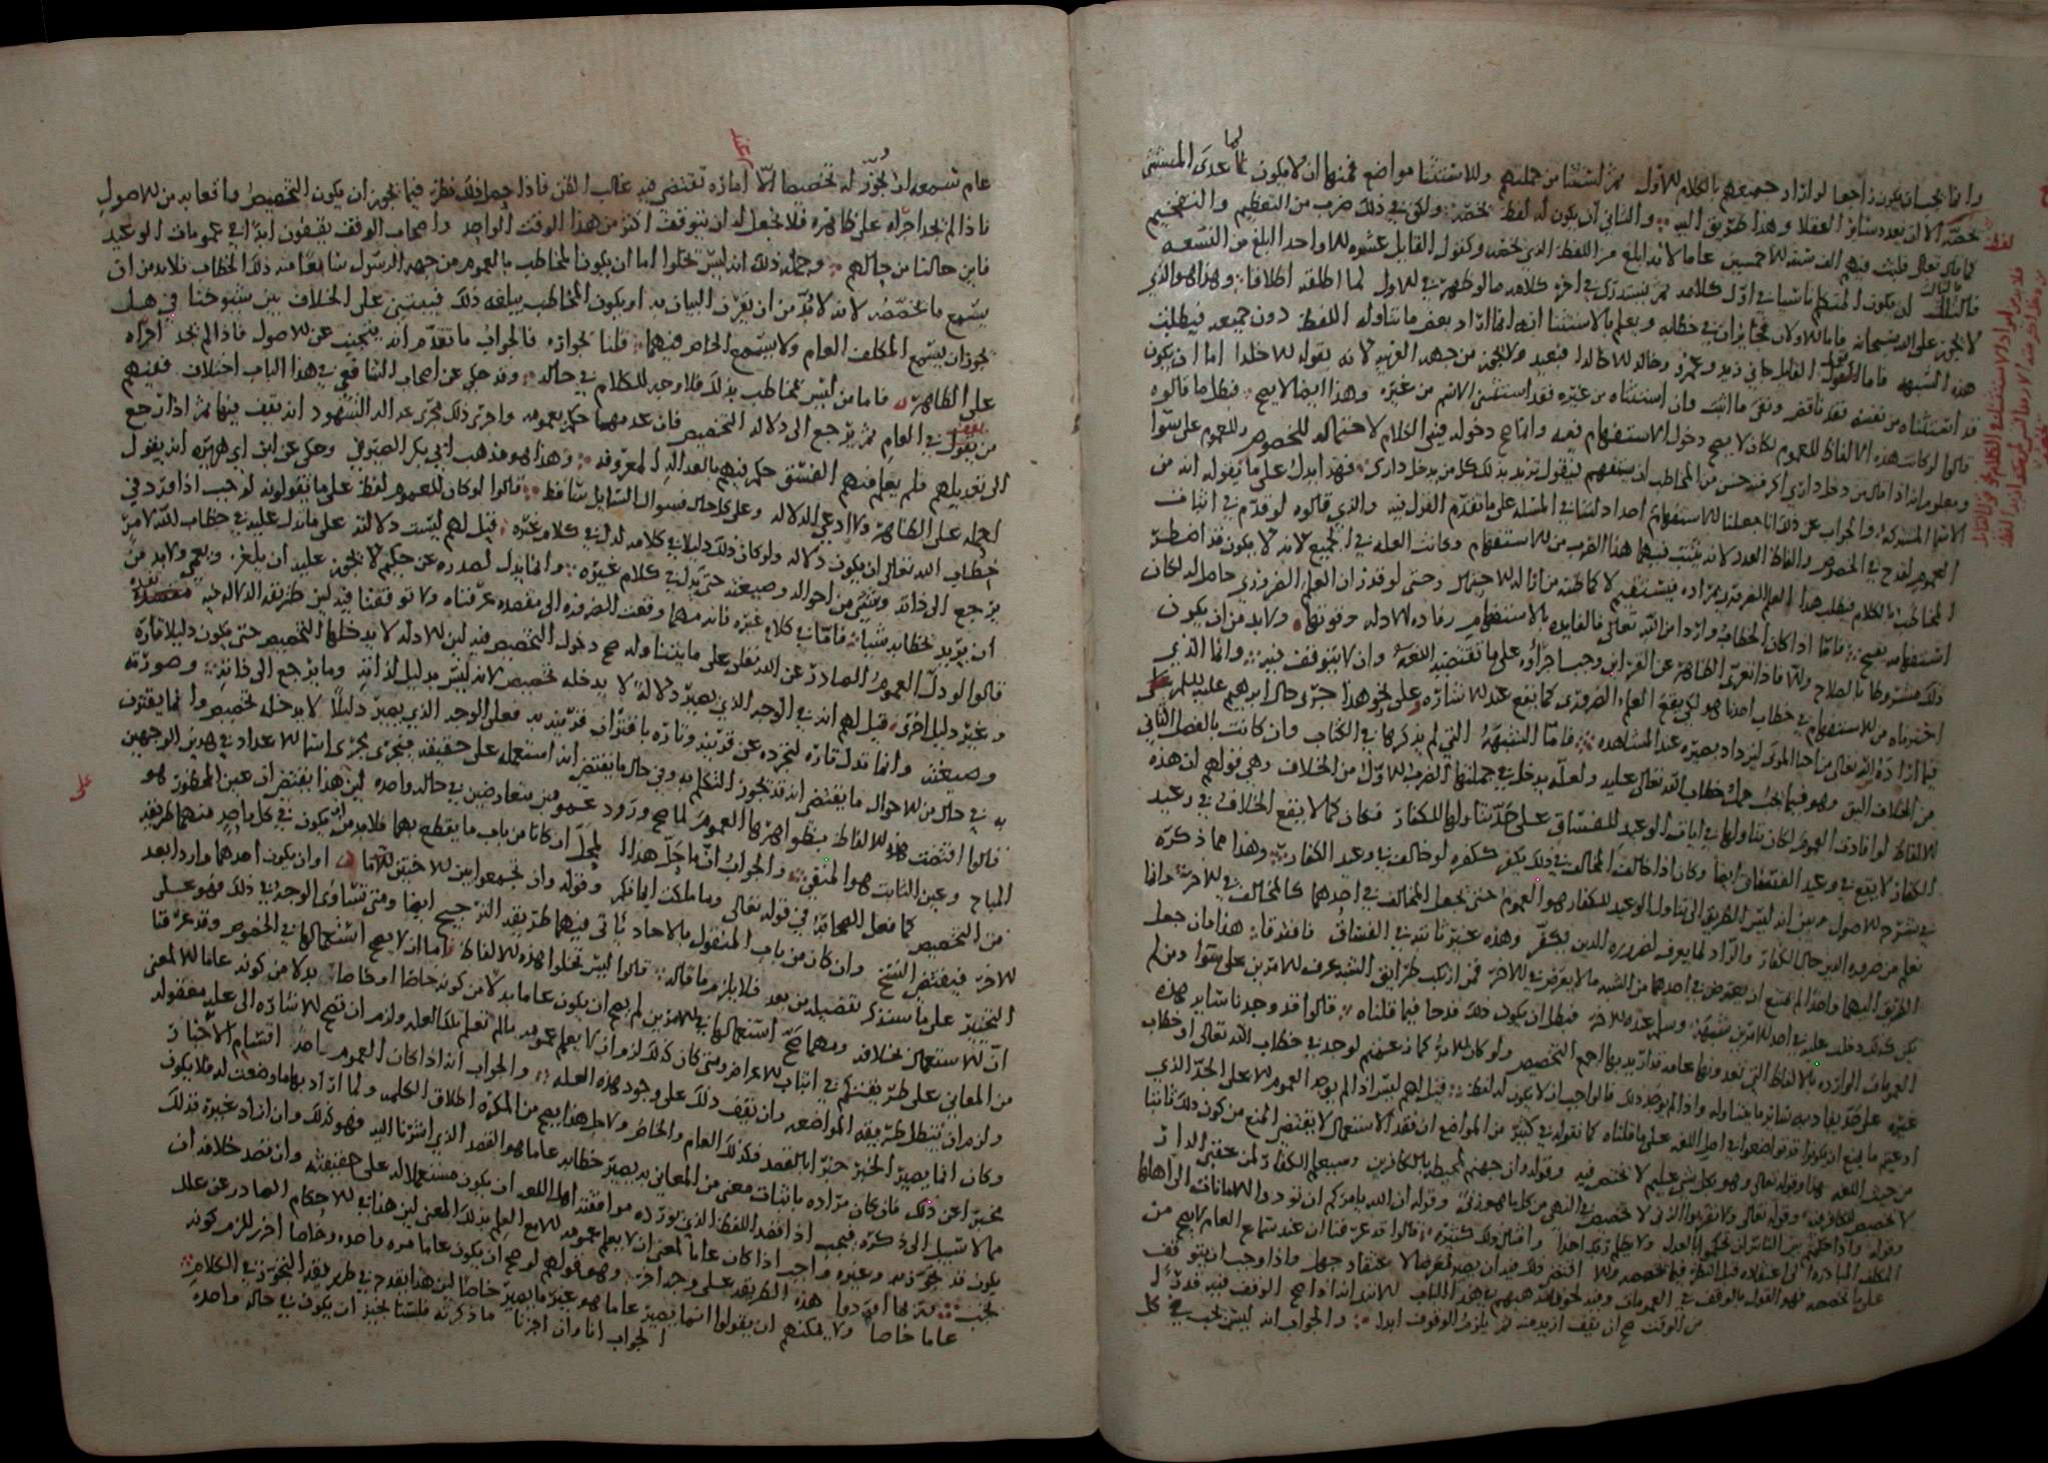 وانما يحسن ان يكون راجعا لو اراد جميعهم بالكلام الاول ثم استثنا من جملتهم وللاستثنا مواضع فمنها ان لا يكون لما عدى المستثنى
يخصه الا ان يعدد سائر العقلا وهذا طريق اليه والثاني ان يكون له لفظ يخصه ولكن في ذلك ضرب من التعظيم والتفخيم
كما قال تعالى فلبث فيهم الف سنة الا خمسين عاما لانه ابلغ من اللفظ الذي يخص وكقول القايل عشرة الا واحدا ابلغ من التسعة
ان يكون المتكلم ناسيا في اول كلامه ثم يستدرك في اخر كلامه ما لو ظهر في الاول لما اطلقه اطلاقا وهذا هو الذي
لا يجوز على الله سبحانه فاما الاولان فجايزان في خطابه ويعلم بالاستثنا انه انما اراد بعض ما تناوله اللفظ دون جميعه فبطلت
هذه الشبهة فاما القايل جاني زيد وعمرو وخالد الا خالدا فبعيد ولا يجوز من جهة العربية لانه بقوله الا خالدا اما ان يكون
قد استثناه من نفسه فقد ناقض ونفى ما اثبت وان استثناه من غيره فقد استثنى الاسم من غيره وهذا ايضا لا يصح فبطل ما قالوه
قالوا لو كانت هذه الالفاظ للعموم لكان لا يصح دخول الاستفهام فيه وانما صح دخوله فيه الكلام لاحتماله للخصوص وللعموم على سوا
ومعلوم انه اذا قال من دخل داري اكرمته حسن من المخاطب ان يستفهم فيقول تريد بذلك كل من يدخل داري فهذا يدل على ما يقوله انه من
الاسما المشتركة والجواب عن ذلك انا جعلنا للاستفهام احدا دلتنا في المسلة على ما تقدم القول فيه والذي قالوه لو قدم في اثبات
العموم لقدح في الخصوص والفاظ العدد لانه يثبت فيهما هذا الضرب من الاستفهام وكانت العلة في الجميع لانه لا يكون قد اضطر
المخاطب الى الكلام فيطلب هذا العلم الضروري بمراده
استفهامه يصح فاما اذا كان الخطاب واردا من الله تعالى فالفايدة بالاستفهام زيادة الادلة وقوتها ولا بد من ان يكون
ذلك مشروطا بالصلاح والا فاذا تعرى الظاهر عن القراين وجب اجراؤه على ما تقتضيه اللغة وان لا يتوقف فيه وانما الذي
اخترناه من الاستفهام في خطاب احدنا هو لكي يقع العلم الضروري كما يقع عند الاشارة وعلى نحو هذا جرى حال ابراهيم عليه السلم
فيما اراده الله تعالى من احيا الموتى ليزداد بصيرة عند المشاهدة فاما الشبهة التي لم يذكرها في الكتاب وان كانت بالفصل الثاني
من الخلاف اليق وهو فيما يجب حمل خطاب الله تعالى عليه ولعله يدخل في جملتها الضرب الاول من الخلاف وهي قولهم ان هذه
الالفاظ لو افادت العموم لكان تناولها في ايات الوعيد للفساق على حد تناولها للكفار فكان كما لا يقع الخلاف في وعيد
الكفار لا يقع في وعيد الفساق ايضا وكان اذا خالف المخالف في ذلك يكفر ككفره لو خالف في وعيد الكفار وهذا مما ذكره
في شرح الاصول وبين انه ليس الطريق الى تناول الوعيد للكفار هو العموم حتى نجعل المخالف في احدهما كالمخالف في الاخر وانما
نعلم من ضرورة الدين حال الكفار والراد لما يعرف لضرورة الدين يكفر وهذه غير ثابتة في الفساق فافترقا هذا وان جعل
الطريق اليهما واحدا لم يمتنع ان يعترض في احدهما من الشبه ما لا يعترض في الاخر فمن ارتكب طرايق الشبه عرف الامرين على سوا ومن لم
يكن كذلك دخلت عليه في احد الامرين شبهة وسلم عنده الاخر فبطل ان يكون ذلك قدحا فيما قلناه قالوا قد وجدنا ساير هذه
العمومات الواردة بالالفاظ التي تعدونها عامة قد اريد بها اجمع التخصيص ولو كان الامر كما زعمتم لوجد في خطاب الله تعالى او خطاب
غيره على حد يفاد به ساير ما يتناوله واذا لم يوجد ذلك فالواجب ان لا يكون له لفظ قيل لهم ليس اذا لم يوجد العموم الا على الحد الذي
ادعيتم ما يمنع ان يكونوا قد تواضعوا في اصل اللغة على ما قلناه كما نقوله في كثير من المواضع ان فقد الاستعمال لا يقتضي المنع من كون ذلك ثابتا
من حيث اللغة هذا وقوله تعالى وهو بكل شي عليم لا يختص فيه وقوله وان جهنم لمحيطة بالكافرين وسيعلم الكفار لمن عقبى الدار
لا تخصيص للكافر منه وقوله تعالى ولا تقربوا الزنى لا تخصيص في النهي من كل ما هو زنى وقوله ان الله يامركم ان تودوا الامانات الى اهلها
وقوله واذا حكمتم بين الناس ان تحكموا بالعدل ولا يظلم ربك احدا وامثال ذلك كثيرة قالوا قد عرفنا ان عند سماع العام لا يصح من
المكلف المبادرة الى اعتقاده قبل النظر فيما يخصصه والا اقتضى ذلك فيه ان يصير معرضا لاعتقاد جهل واذا وجب ان يتوقف
على ما يخصصه فهو القول بالوقف في العمومات وفيه لحوق مذهبهم في هذا الباب لانه اذا صح الوقف فيه قدرا
من الوقت صح ان يقف ازيد منه ثم يلزمه الوقوف ابدا والجواب انه ليس يجب في كل
عام نسمعه ان نجوز له تخصيصا الا امارة تقتضي فيه غالب الظن فاذا حصل نظر فيما يجوز ان يكون التخصيص واقعا به من الاصول
فاذا لم نجد اجراه على ظاهره فلا يجعل له ان يتوقف اكثر من هذا الوقت الواحد واصحاب الوقف يقفون ابدا في عمومات الوعيد
فاين حالنا من حالهم وجملة ذلك انه ليس يخلوا اما ان يكون المخاطب بالعموم من جهة الرسول سامعا منه ذلك الخطاب فلا بد من ان
يسمع ما يخصصه لانه لا بد من ان يقرن البيان به او يكون المخاطب يبلغه ذلك فيبتنى على الخلاف بين شيوخنا في هل
يجوز ان يسمع المكلف العام ولا يسمع الخاص فيهما قلنا بجوازه فالجواب ما تقدم انه يبحث عن الاصول فاذا لم يجد اجراه
على الظاهر فاما من ليس بمخاطب بذلك فلا وجه للكلام في حاله وقد حكي عن اصحاب الشافعي في هذا الباب اختلاف فمنهم
من يقول في العام ثم يرجع الى دلالة التخصيص فان عدمها حكم بعمومه واجرى ذلك مجرى عدالة الشهود انه يقف فيها ثم اذا رجع
الى تعديلهم فلم يعلم منهم الفسق حكم فيهم بالعدالة المعروفة وهذا هو مذهب ابي بكر الصيرفي وحكى عن ابن ابي هريرة انه يقول
احمله على الظاهر ولا ادعى الدلالة وعلى كل حال فسوال السايل ساقط قالوا لو كان للعموم لفظ على ما تقولونه لوجب اذا ورد في
خطاب الله تعالى ان يكون دلالة ولو كان ذلك دليلا في كلامه لدل في كلام غيره قيل لهم ليست دلالته على ما تدل عليه في خطاب الله لامر
يرجع الى ذاته وشيء من احواله وصيغته حتى يدل في كلام غيره وانما يدل لصدوره عن حكيم لا يجوز عليه ان يلغز ويعمي ولا بد من
ان يريد بخطابه شيا فاما في كلام غيره فانه مهما وقعت الضرورة الى مقصده عرفناه ولا توقفنا فيه لان طريقة الدلالة فيه
قالوا لو دل العموم الصادر عن الله تعالى على ما يتناوله صح دخول التخصيص فيه لان الادلة لا يدخلها التخصيص حتى يكون دليلا تارة
وغير دليل اخرى قيل لهم انه في الوجه الذي يصير دلالة لا يدخله تخصيص لانه ليس بدليل لذاته وما يرجع الى ذاته وصورته
وصيغته وانما تدل تارة لتجرده عن قرينة وتارة باقتران قرينة به فعلى الوجه الذي يصير دليلا لا يدخله تخصيص وانما يقترن
به في حال من الاحوال ما يقتضي انه قد تجوز المتكلم به وفي حال ما يقتضي انه استعمله على حقيقته فيجري مجرى اسما الاعداد في هذين الوجهين
قالوا اقتضت هذه الالفاظ بظواهرها العموم لما صح ورود عمومين متعارضين في حالة واحدة لان هذا يقتضي ان عين المحظور هو
المباح وعين الثابت هو المنفي والجواب ان ما حل هذا المحل ان كانا من باب ما يقطع بهما فلا بد من ان يكون في كل واحد منهما طريقة
من التخصيص كما فعل الصحابة في قوله تعالى وما ملكت ايمانكم وقوله وان تجمعوا بين الاختين الاما او ان يكون احدهما واردا بعد
الاخر فيقتضي النسخ وان كان من باب المنقول بالاحاد ياتي فيهما طريقة الترجيح ايضا ومتى تساوى الوجه في ذلك فهو على
التخيير على ما سنذكر تفصيله من بعد فلا يلزم ما قاله قالوا ليس تخلوا هذه الالفاظ اما ان لا يصح استعمالها في الخصوص وقد عرفنا
ان الاستعمال بخلافه ومهما صح استعمالها في الامرين لم يصح ان يكون عاما بدلا من كونه خاصا او خاصا بدلا من كونه عاما الا لمعنى
من المعاني على طريقتكم في اثبات الاعراض ومتى كان كذلك لزم ان لا يعلم عمومه ما لم تعلم تلك العلة ولزم ان تصح الاشارة الى علة معقولة
ولزم ان تبطل طريقة المواضعة وان يقف ذلك على وجود هذه العلة والجواب انه اذا كان العموم احد اقسام الاخبار
وكان انما يصير الخبر خبرا بالقصد فكذلك العام والخاص ولاجل هذا يصح من المكره اطلاق الكلمة ولما اراد بها ما وضعت له فلا يكون
مخبرا عن ذلك فان كان مراده باثبات معنى من المعاني به يصير خطابه عاما هو القصد الذي اشرنا اليه فهو كذلك وان اراد غيره فذلك
مما لا سبيل الى ذكره فيجب اذا قصد اللفظ الذي يورده موافقته اهل اللغة ان يكون مستعملا له على حقيقته وان قصد خلافه ان
يكون قد تجوز به وغيره واجب اذا كان عاما لمعنى ان لا يعلم عمومه الا مع العلم بذلك المعنى لان هذا في الاحكام الصادرة عن علل
يجب فيها اوردوا هذه الطريقة على وجه اخر وهو قولهم لو صح ان يكون عاما مرة واحدة وخاصا اخرى للزم كونه
عاما خاصا ولا يمكنهم ان يقولوا انما يصير عاما هو غير ما يصير خاصا لان هذا يقدح في طريقة التجوز في الكلام
الجواب انا وان اجزنا ما ذكرته فلسنا نجيز ان يكون في حالة واحدة